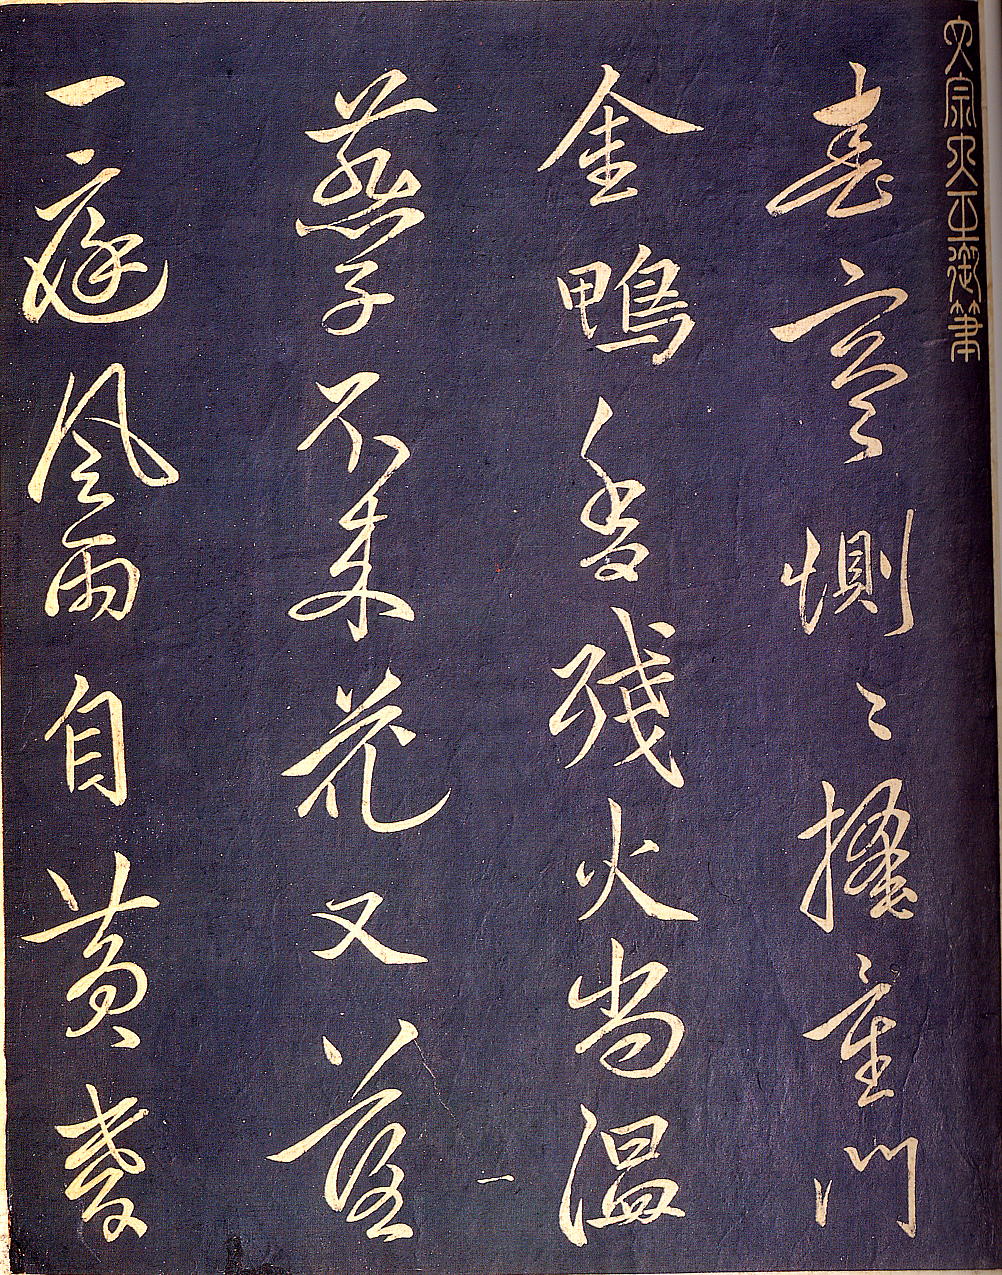 文宗大王御筆
春寒惻〻掩重門
金鴨香殘火尚溫
燕子不來花又落
一庭風雨自黃昏
一